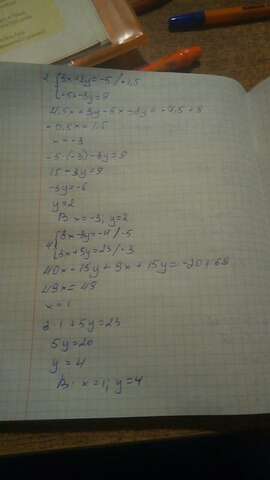 {3x+2y=-5 /·1,5
{-5x-3y=9
4,5x+3y-5x-3y=-7,5+9
-0,5x=1,5
x=-3
-5·(-3)-3y=9
15-3y=9
-3y=-6
y=2
В: x=-3; y=2
4 {8x-3y=-4 /·5
{3x+5y=23 /·3
40x-15y+9x+15y=-20+69
49x=49
x=1
3·1+5y=23
5y=20
y=4
В: x=1; y=4